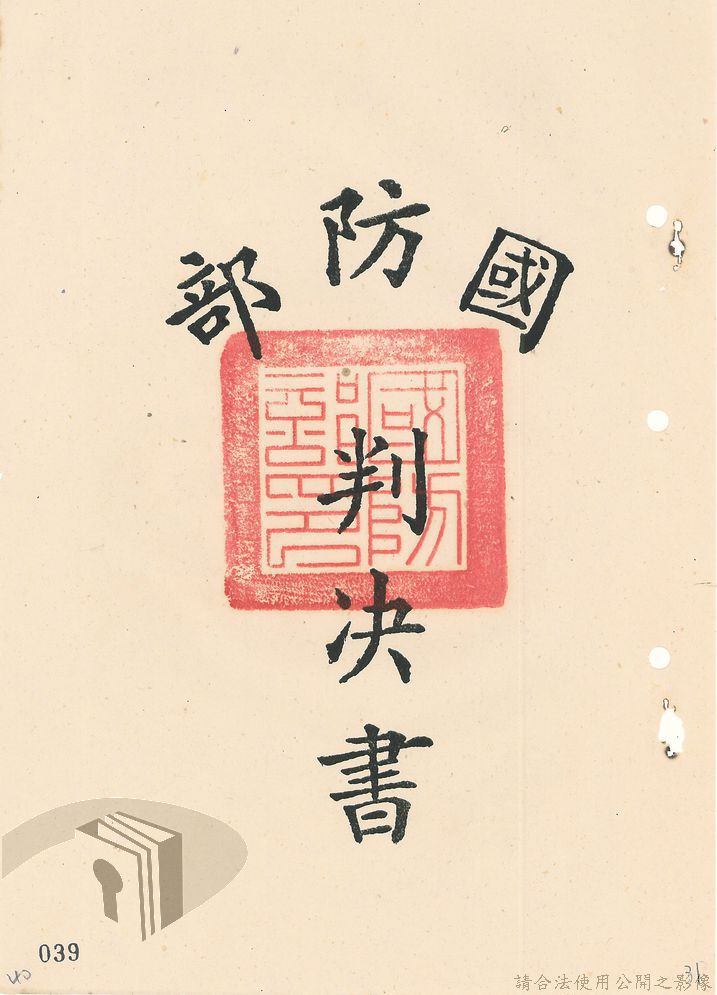 國防部
國防部印
判決書
039
40
31
請合法使用公開之影像